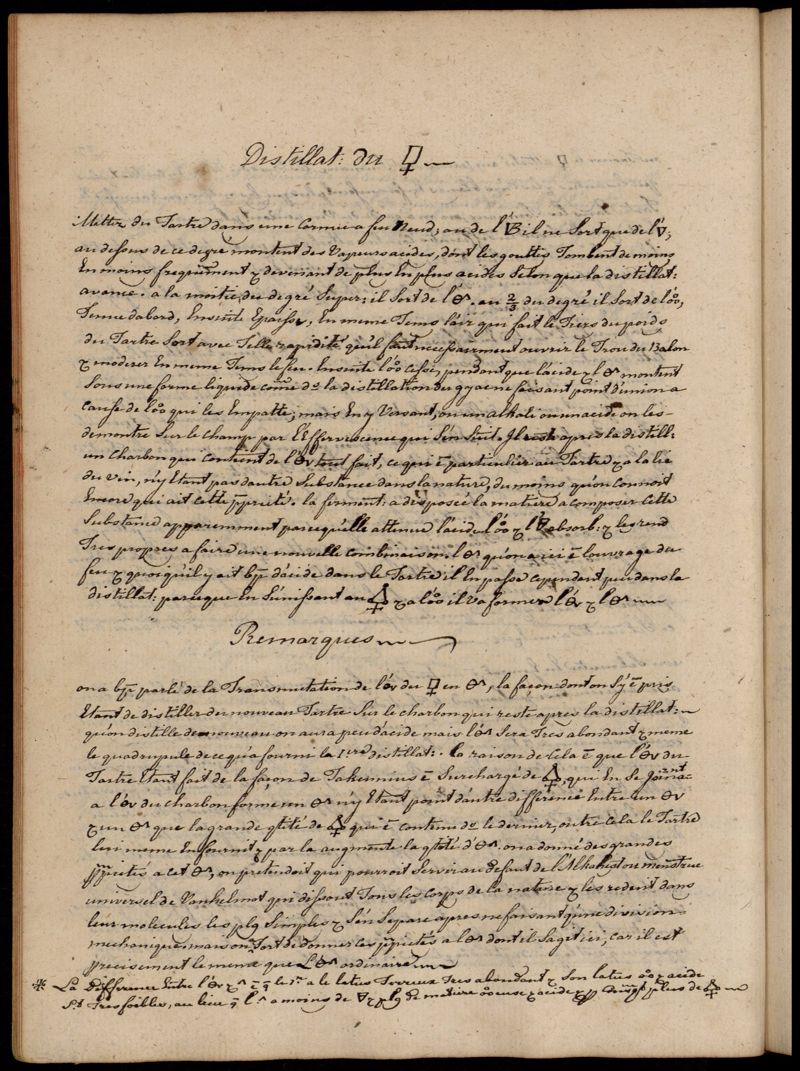 Distillat: du 🜿
Mettez du Tartre dans une Cornue a feu Neud; au de l'🜄B il ne Sort que de l'🜄;
au dessous de ce degré montent des Vapeurs acides, dont les gouttes Tombent de moins
En moins frequemment & devienant de plus En plus acides Selon que la distillat:
avance. a la moitie du degré Super: il Sort de l'🜔. au 2/3 du degré il Sort de l'oo,
Tenue dabord, Ensuite Epaisse, En meme Tems l'air qui fait le Tiers du poids
du Tartre Sort avec Telle rapidité qu'il faut necessairment ouvrir le Trou du Balon
& moderer En meme Tems le feu. Ensuite l'oo cesse, pendant que l'acide & l' montent
Sous une forme liquide come d la distillation du gyac ne faisant point d'union a
cause de l'oo qui les Empatte; mais En y Versant, ou un alkali ou un acide on les
demontre Sur le champ par l'Effervescence qui S'En Suit. Il reste apres la distill:
un Charbon qui contient de l' tout fait, ce qui ē particulier au Tartre & a la lie
du vin, n'y Etant pas dautre Substance dans la nature, du moins qu'on connoit
Encore qui ait cette pprieté. la ferment: a disposée la matiere a composer Cette
Substance apparemment parcequ'elle attenue l'acid: l'oo & l' absorb: & les rend
Tres propres a faire une nouvelle combinaison. l' qu'on a ici ē l'ouvrage du
feu & quoi qu'il y ait d'acide dans le Tartre il En passe cependant peu dans la
distillat: parceque En S'unissant au 🜍 & a l'oo il va former l' & l'
Remarques
on a parlé de la Transmutation de l' du 🜿 en , la façon dont on S'y ē pris
Etant de distiller du nouveau Tartre Sur le charbon qui reste apres la distillat:
qu'on distille de nouveau on aura peu d'acide mais l' Sera Tres abondant & meme
le quadruple de ce qu'a fourni la 1.re distillat:. la raison de Cela ē que l' du
Tartre Etant fait de la façon de Takenius ē Surchargé de 🜍, qui En Se joint
a l' du charbon forme un n'y Etant point d'autre difference Entre un
& un que la grande qtité de 🜍 qui ē contenu d le dernier, outre cela le Tartre
lui meme En fournit, & par la augmente la qtité d'. on a donné des grandes
pprietés a cet , on pretendoit qui pourroit Servir au defaut de l'Alkahest ou menstrue
universel de Vanhelmot qui dissout Tous les Corps de la nature & les redent dans
leur molecules les plg Simples & S'en Separe apres ne faisant qu'une division
mechanique; mais on a Tort de donner ces pprietés a l' dont il Sagit ici, car il est
precisement le meme que l' ordinaire.
* La Difference Entre l' & ē q̄ le 1.r a le latus Terreux Tres abondant & Son latus oo & acide
S.t Tres foibles, au lieu q̄ l' a moins de 🜃 & plg de matiere oo euse & acide & plus de 🜍